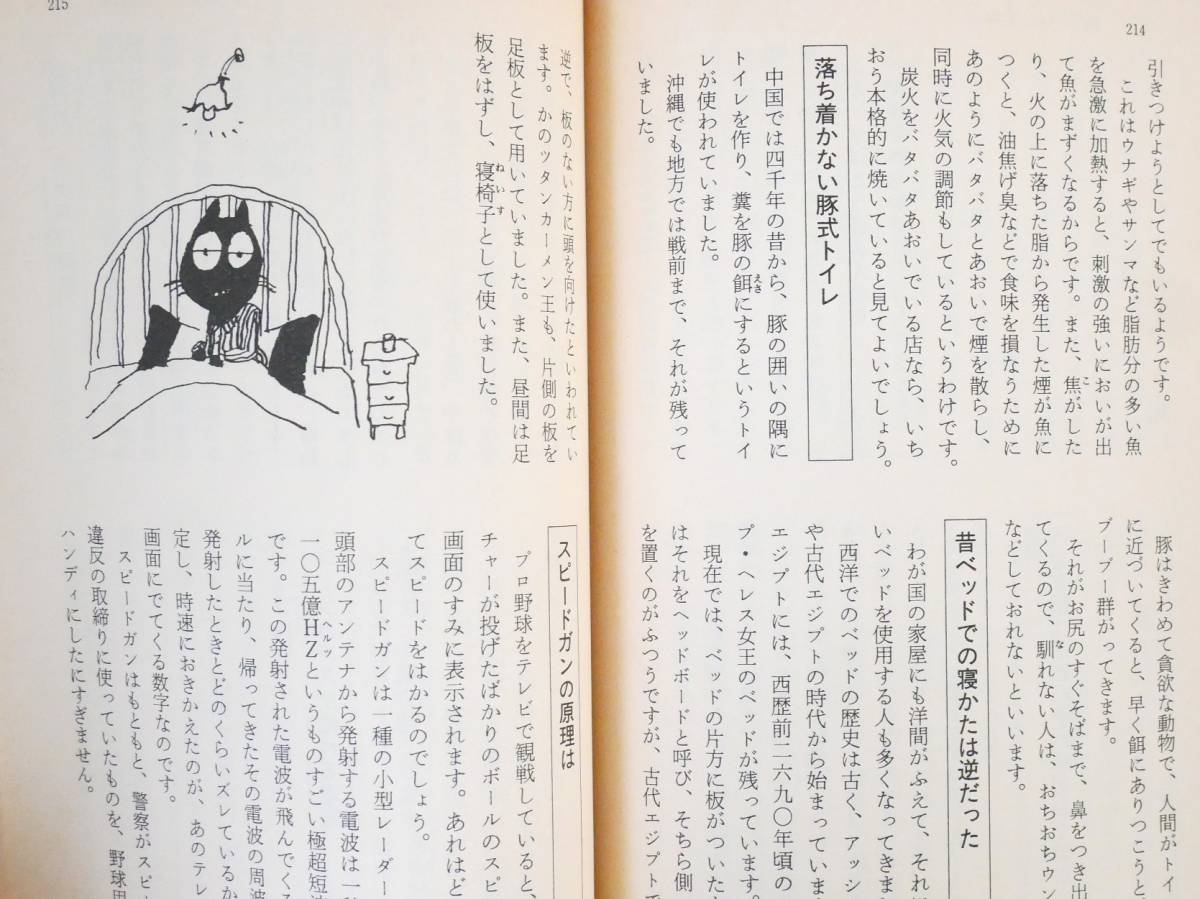 214
引きつけようとしてでもいるようです。
これはウナギやサンマなど脂肪分の多い魚
を急激に加熱すると、刺激の強いにおいが出
こ
て魚がまずくなるからです。また、焦がした
り、火の上に落ちた脂から発生した煙が魚に
つくと、油焦げ臭などで食味を損なうために
あのようにバタバタとあおいで煙を散らし、
同時に火気の調節もしているというわけです。
炭火をバタバタあおいでいる店なら、いち
おう本格的に焼いていると見てよいでしょう。
落ち着かない豚式トイレ
中国では四千年の昔から、豚の囲いの隅に
えさ
トイレを作り、糞を豚の餌にするというトイ
レが使われていました。
沖縄でも地方では戦前まで、それが残って
いました。
豚はきわめて貪欲な動物で、人間がトイ
に近づいてくると、早く餌にありつこうと
ブーブー群がってきます。
それがお尻のすぐそばまで、鼻をつき出
な
てくるので、馴れない人は、おちおちウン
などしておれないといいます。
昔ベッドでの寝かたは逆だった
わが国の家屋にも洋間がふえて、それ
いベッドを使用する人も多くなってきま
西洋でのベッドの歴史は古く、アッシ
や古代エジプトの時代から始まっていま
エジプトには、西歴前二六九〇年頃の
プ・ヘレス女王のベッドが残っています。
現在では、ベッドの片方に板がついた
はそれをヘッドボードと呼び、そちら側
を置くのがふつうですが、古代エジプトで
215
逆で、板のない方に頭を向けたといわれてい
ます。かのツタンカーメン王も、片側の板を
足板として用いていました。また、昼間は足
ねいす
板をはずし、寝椅子として使いました。
スピードガンの原理は
プロ野球をテレビで観戦していると、
チャーが投げたばかりのボールのスピ
画面のすみに表示されます。あれはど
てスピードをはかるのでしょう。
スピードガンは一種の小型レーダー
頭部のアンテナから発射する電波は一秒
ヘルツ
一〇五億HZというものすごい極超短波
です。この発射された電波が飛んでくる
ルに当たり、帰ってきたその電波の周波
発射したときとどのくらいズレているか
定し、時速におきかえたのが、あのテレ
画面にでてくる数字なのです。
スピードガンはもともと、警察がスピ
違反の取締りに使っていたものを、野球用
ハンディにしたにすぎません。